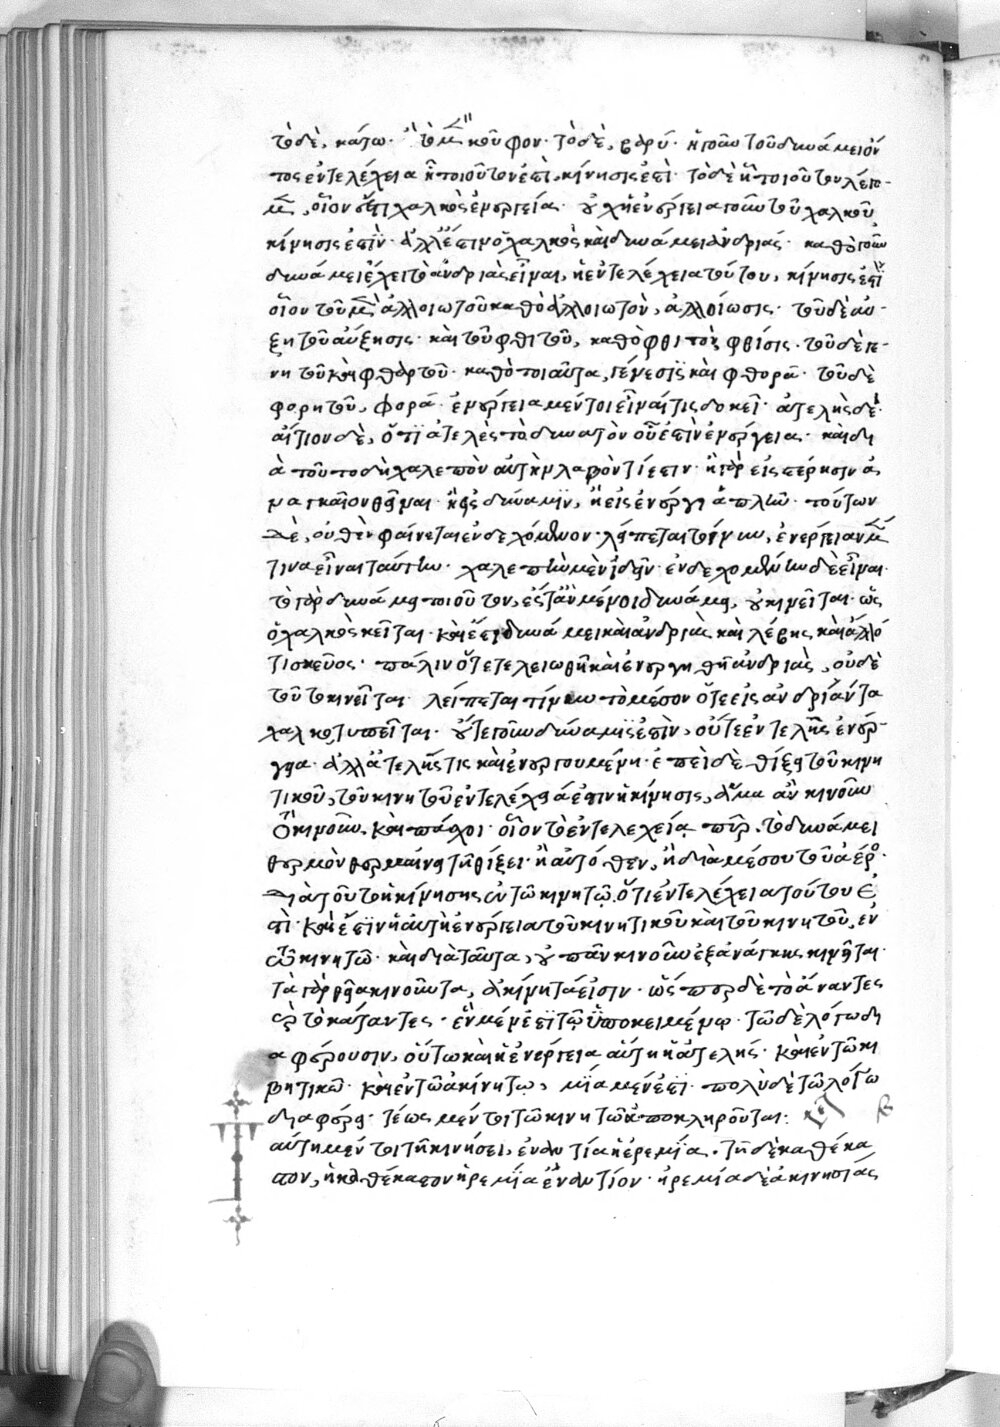 τὸ δὲ, κάτω· ἢ τὸ μὲν κοῦφον· τὸ δὲ, βαρύ· ἡ γοῦν τοῦ δυνάμει ὄν
τος ἐντελέχεια ᾗ τοιοῦτόν ἐστι, κίνησίς ἐστι· τὸ δὲ ᾗ τοιοῦτον λέγο-
μεν, οἷον ἔστι χαλκὸς ἐνεργείᾳ· οὐχ ἡ ἐνέργεια γοῦν τοῦ χαλκοῦ
κίνησίς ἐστιν· ἀλλ' ἔστιν ὁ χαλκὸς καὶ δυνάμει ἀνδριάς· καθὸ γοῦν
δυνάμει ἔχει τὸ ἀνδριὰς εἶναι, ἡ ἐντελέχεια τούτου, κίνησίς ἐστιν
οἷον τοῦ μὲν ἀλλοιωτοῦ καθὸ ἀλλοιωτὸν, ἀλλοίωσις· τοῦ δὲ αὐ-
ξητοῦ αὔξησις· καὶ τοῦ φθιτοῦ, καθὸ φθιτὸν φθίσις· τοῦ δὲ γε-
νητοῦ καὶ φθαρτοῦ· καθὸ τοιαῦτα, γένεσις καὶ φθορά· τοῦ δὲ
φορητοῦ, φορά· ἐνέργεια μέν τοι εἶναί τις δοκεῖ· ἀτελὴς δέ·
αἴτιον δὲ, ὅτι ἀτελὲς τὸ δυνατὸν οὗ ἐστὶν ἐνέργεια· καὶ δι
ὰ τοῦτο δὴ χαλεπὸν αὐτὴν λαβὸν τί ἐστιν· ἢ γὰρ εἰς στέρησιν ἀ
ναγκαῖον θεῖναι· ἢ εἰς δύναμιν, ἢ εἰς ἐνέργειαν ἁπλῶς· τούτων
δὲ, οὐθὲν φαίνεται ἐνδεχόμενον· λείπεται τοίνυν, ἐνέργειαν μέν
τινα εἶναι ταύτην· χαλεπὴν μὲν ἰδεῖν· ἐνδεχομένην δὲ εἶναι·
τὸ γὰρ δυνάμει ποιοῦτον, ἔστ' ἂν μένοι δυνάμει, οὐ κινεῖται· ὡς
ὁ χαλκὸς κεῖται· καὶ ἔστι δυνάμει καὶ ἀνδριὰς καὶ λέβης καὶ ἄλλό
τι σκεῦος· πάλιν ὅτε τελειωθῇ καὶ ἐνεργηθῇ ἀνδριὰς, οὐδὲ
τοῦτο κινεῖται· λείπεται τοίνυν τὸ μέσον ὅτε εἰς ἀνδριάντα
χαλκοτυπεῖται· οὔτε γοῦν δύναμίς ἐστὶν, οὔτε ἐντελὴς ἐνέρ-
γεια· ἀλλ' ἀτελής τις καὶ ἐνεργουμένη· ἐπεὶ δὲ θίξει τοῦ κινη
τικοῦ, τοῦ κινητοῦ ἐντελέχειά ἐστιν ἡ κίνησις, ἅμα ἂν κινοῦν
τὸ κινοῦν καὶ πάσχοι· οἷον τὸ ἐντελεχείᾳ πῦρ, τὸ δυνάμει
θερμὸν θερμαίνει τῇ θίξει· ἢ αὐτόθεν, ἢ διὰ μέσου τοῦ ἀέρος·
διὰ τοῦτο ἡ κίνησις ἐν τῷ κινητῷ, ὅτι ἐντελέχεια τούτου ἐ
στί· καὶ ἔστιν ἡ αὐτὴ ἐνέργεια τοῦ κινητικοῦ καὶ τοῦ κινητοῦ, ἐν
τῷ κινητῷ· καὶ διὰ ταῦτα, οὐ πᾶν κινοῦν ἐξανάγκης κινεῖται·
τὰ γὰρ θεῖα κινοῦντα, ἀκίνητά εἰσιν· ὥσπερ δὲ τὸ ἄναντες
καὶ τὸ κάταντες· ἓν μέν ἐστι τῷ ὑποκειμένῳ· τῷ δὲ λόγῳ δι
αφέρουσιν, οὕτω καὶ ἡ ἐνέργεια αὕτη ἡ ἀτελής· καὶ ἐν τῷ κι
νητικῷ· καὶ ἐν τῷ ἀκινήτῳ, μία μέν ἐστι· πολὺ δὲ τῷ λόγῳ
διαφέρει· τέως μέν τοι τῷ κινητῷ ἀποκληροῦται:
αὕτη μέν τοι τῇ κινήσει, ἐναντία ἡ ἠρεμία· τῇ δὲ καθέκα
στον, ἡ καθέκαστον ἠρεμία ἐναντίον· ἠρεμία δὲ ἀκινησίας